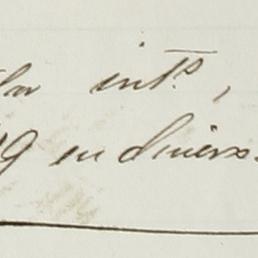 int.s,
9 en divers.